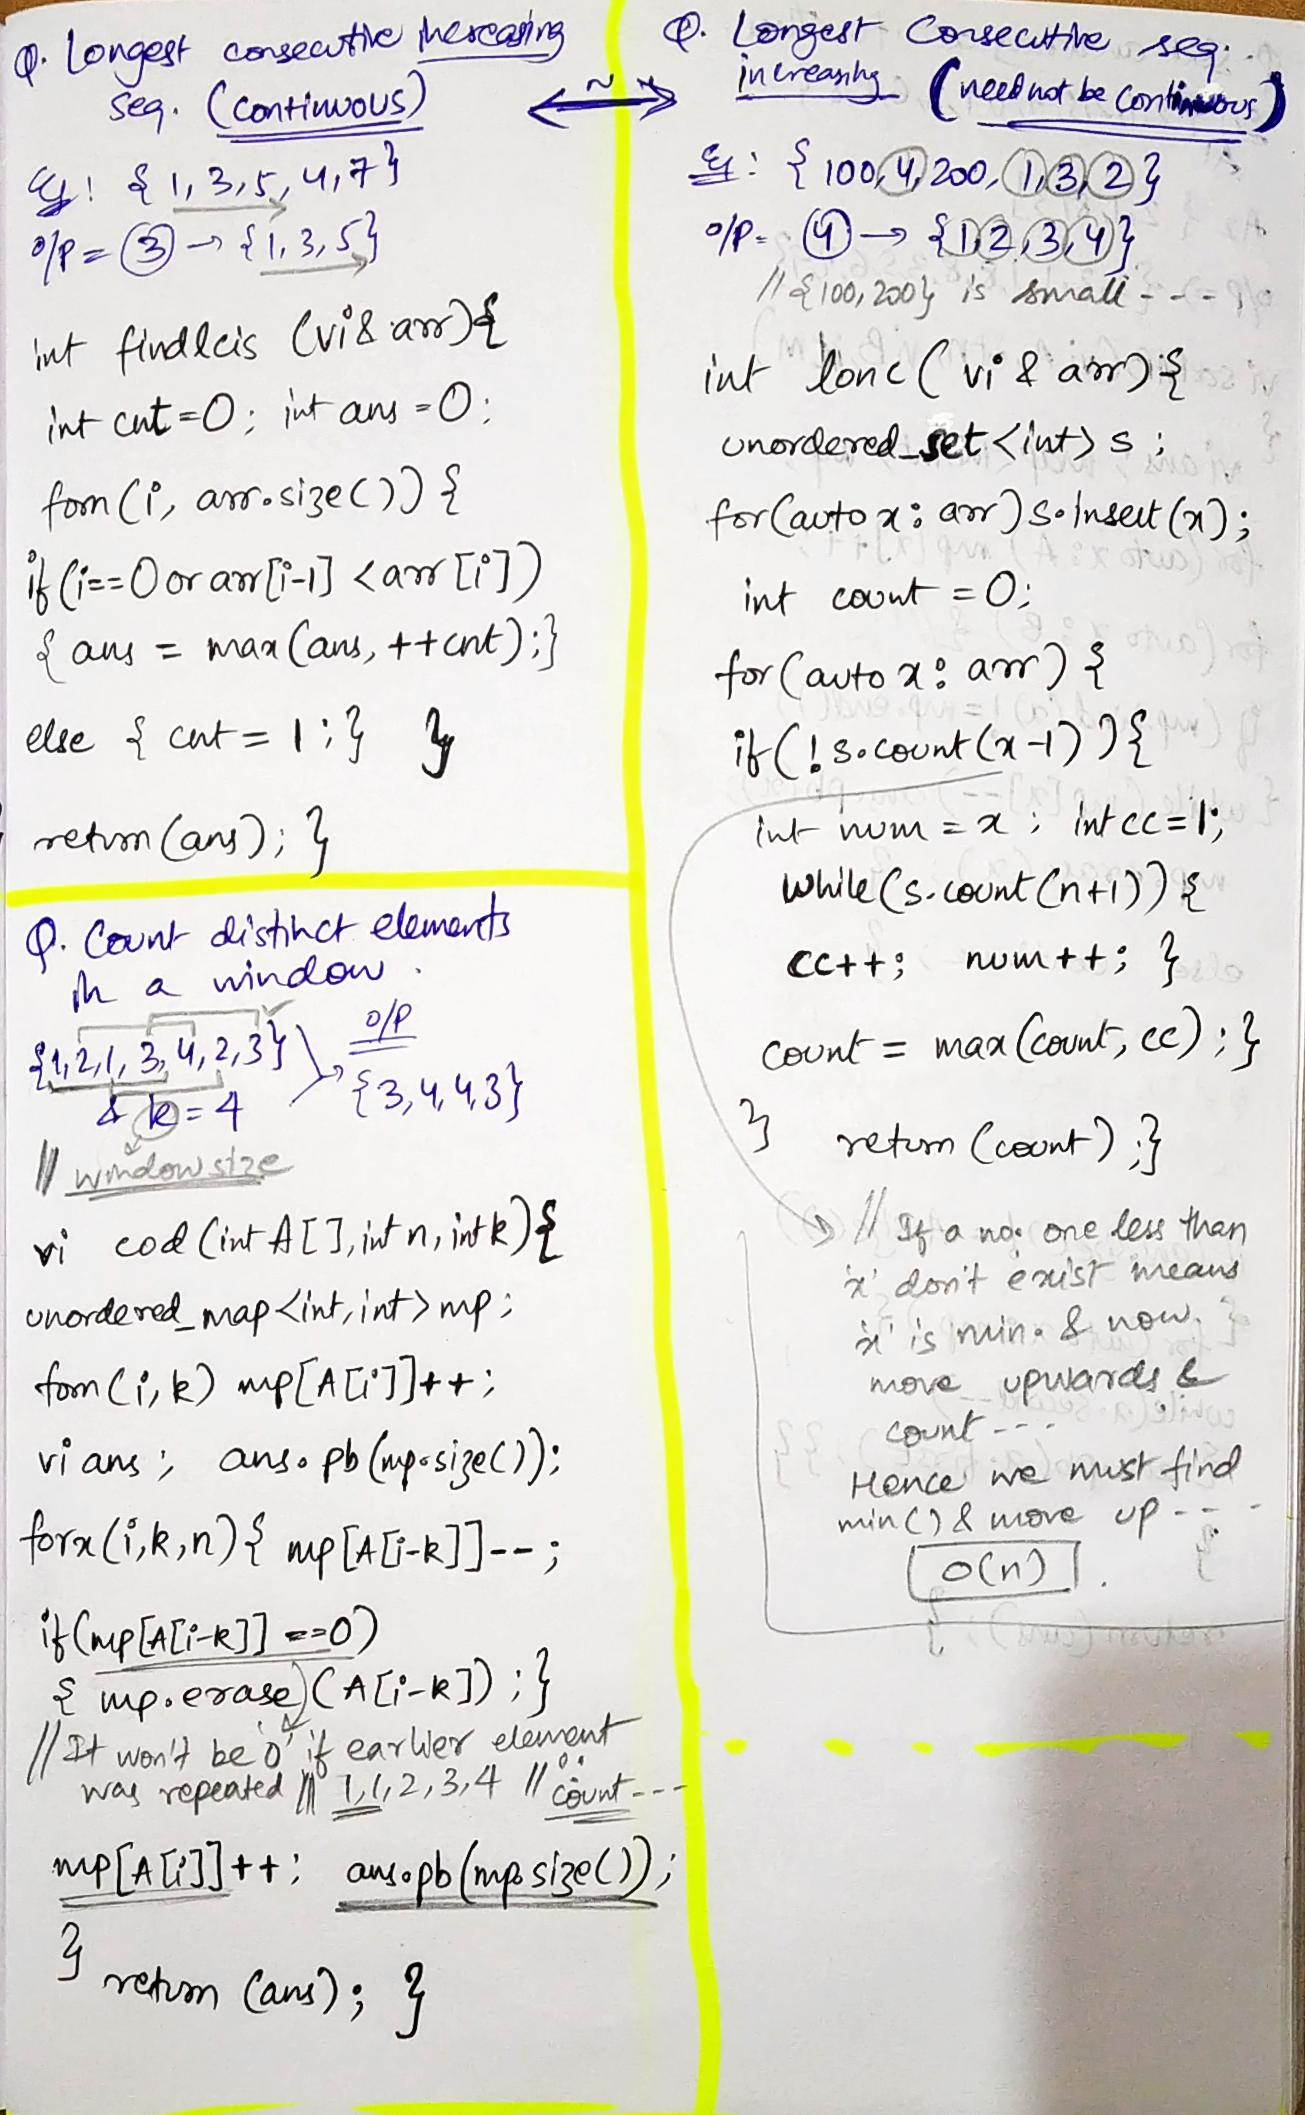 Q. Longest consecutive increasing
seq. (continuous)
Eg: { 1, 3, 5, 4, 7 }
o/p = 3 → { 1, 3, 5 }
int findlcis (vi & arr) {
int cnt = 0 ; int ans = 0 ;
forn (i, arr.size()) {
if (i==0 or arr[i-1] < arr[i])
{ ans = max (ans, ++cnt) ; }
else { cnt = 1 ; } }
return (ans) ; }
Q. Count distinct elements
in a window .
{1, 2, 1, 3, 4, 2, 3}
& k = 4
o/p
{ 3, 4, 4, 3 }
// window size
vi cod (int A[ ], int n, int k) {
unordered_map <int, int> mp ;
forn (i, k) mp[A[i]]++ ;
vi ans ; ans.pb (mp.size()) ;
forx (i, k, n) { mp [A[i-k]]-- ;
if (mp[A[i-k]] ==0)
{ mp.erase (A[i-k]) ; }
// It won't be '0' if earlier element
was repeated /// 1, 1, 2, 3, 4 // count ---
mp[A[i]]++ ; ans.pb (mp.size()) ;
}
return (ans) ; }
Q. Longest Consecutive seq.
increasing (need not be continuous)
~
Eg : { 100, 4, 200, 1, 3, 2 }
o/p = 4 → { 1, 2, 3, 4 }
// {100, 200} is small ----
int lonc ( vi & arr) {
unordered_set <int> s ;
for (auto x : arr) s.insert (x) ;
int count = 0 ;
for (auto x : arr) {
if ( ! s.count (x-1) ) {
int num = x ; int cc = 1 ;
while (s.count (n+1)) {
cc++ ; num++ ; }
count = max (count, cc) ; }
} return (count) ; }
// If a no. one less than
'x' don't exist means
'x' is min. & now
move upwards &
count ---
Hence we must find
min() & move up ---
O(n) .